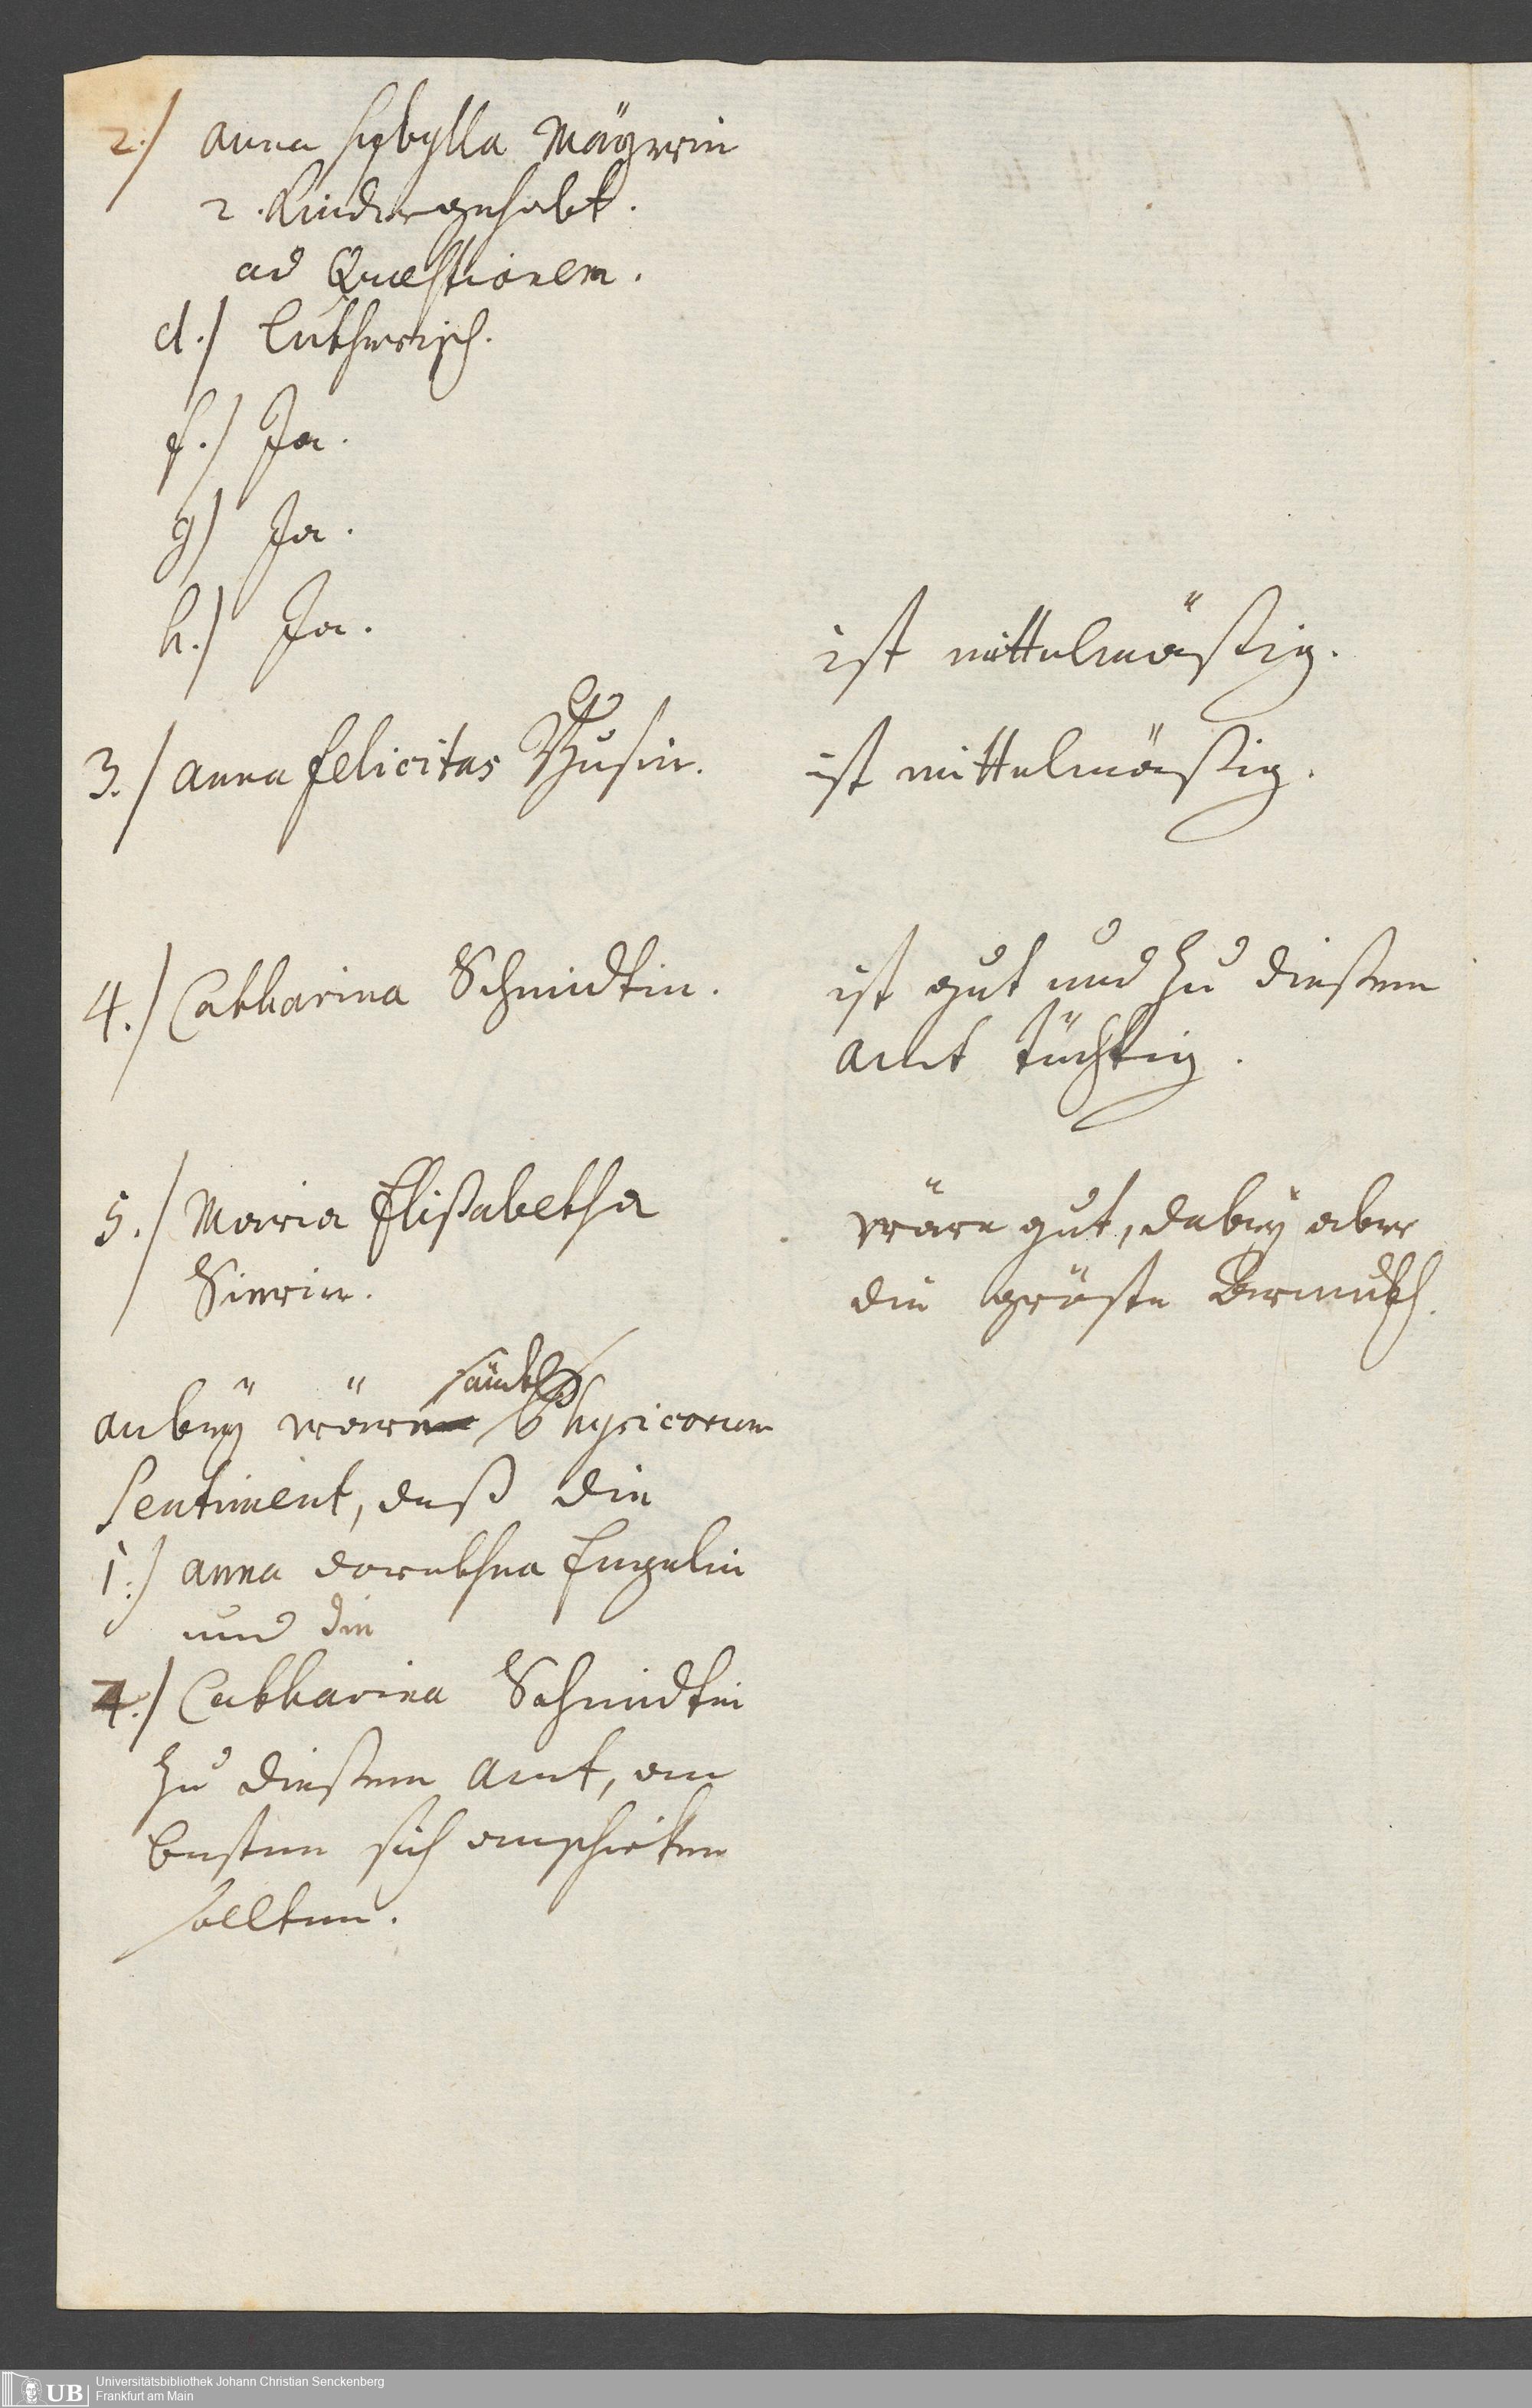 2./ Anna Sybylla Mäyerin
2. Kinder gehabt.
ad Quæstionem.
d./ Lutherisch.
f./ Ja.
g/ Ja.
h./ Ja.
ist mittelmäßig.
3./ Anna Felicitas
ist mittelmäßig.
4./ Catharina Schmidtin.
ist gut und zu dießem
Amt tüchtig.
5./ Maria Elißabetha
wäre gut, dabey aber
die gröste Armuth.
anbey wäre sämtl. Physicorum
Sentiment, daß die
1./ Anna Dorethea Engelin
und die
4./ Catharina Schmidtin
zu dießem Amt, am
besten sich
sollten.
UB Universitätsbibliothek Johann Christian Senckenberg
Frankfurt am Main